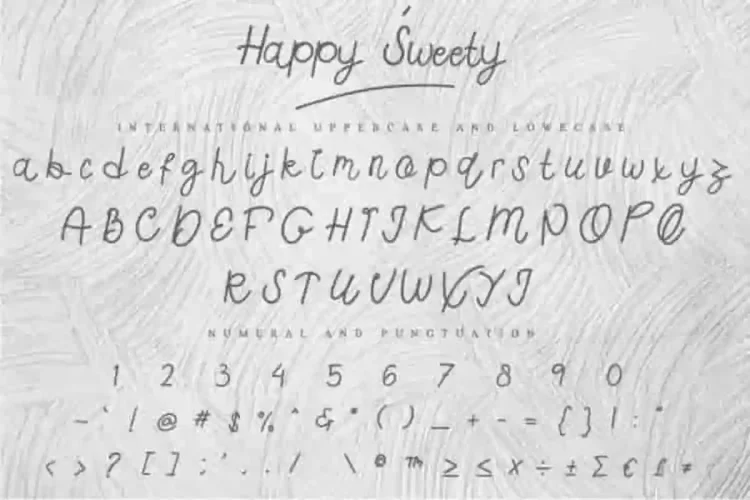 Happy Sweety
INTERNATIONAL UPPERCASE AND LOWECASE
a b c d e f g h i j k l m n o p q r s t u v w x y z
A B C D E F G H I J K L M N O P Q
R S T U V W X Y Z
NUMERAL AND PUNCTUATION
1 2 3 4 5 6 7 8 9 0
~ ` ! @ # $ % ^ & * ( ) _ + - = { } | : "
< > ? [ ] ; ' . . / \ ® ™ ≥ ≤ x ÷ ± Σ € £ ≠